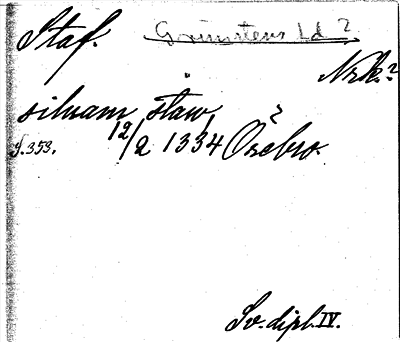 Staf. Grimstens hd ?
Nrk.?
siluam staw
S.353. 12/2 1334 Örebro. ?
Sv. dipl. IV.